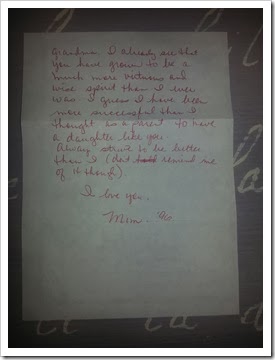 Grandma I already see that
you have grown to be a
much more virtuous and
wise spirit than I ever
was. I guess I have been
more successful than I
thought as a parent to have
a daughter like you.
Always strive to be better
than I (dont remind me
of it though).
I love you.
Mom.